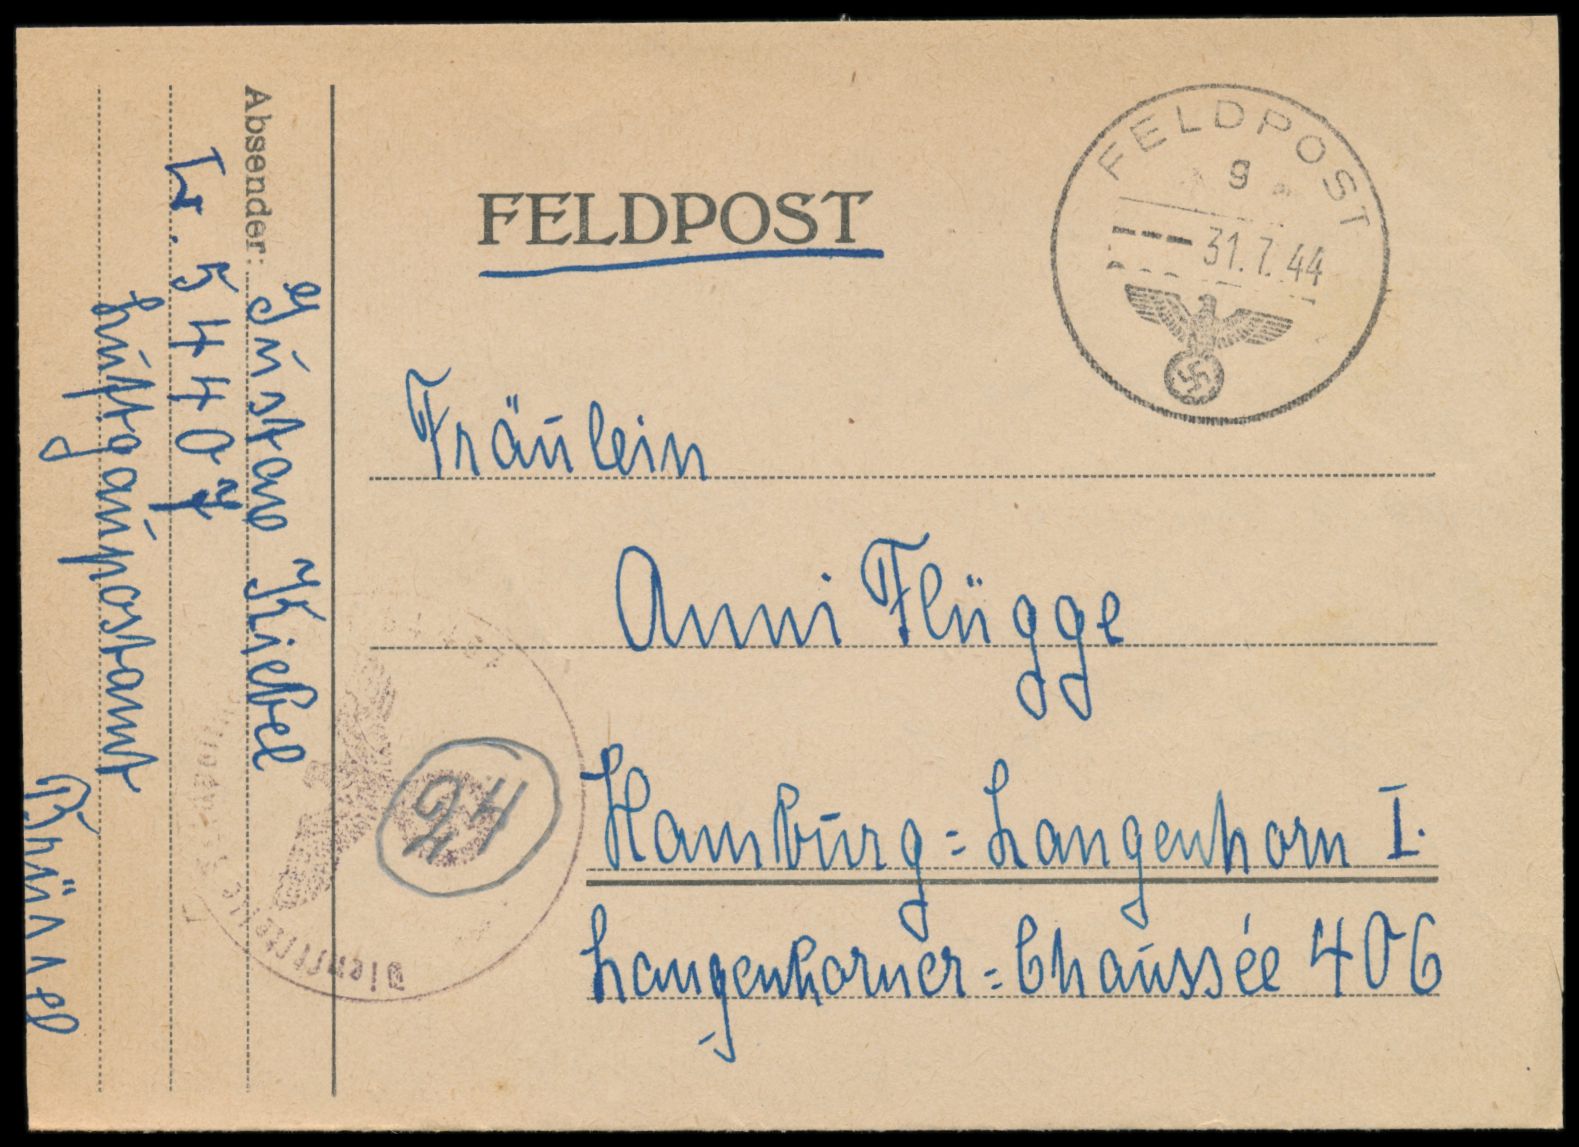 FELDPOST
FELDPOST
g
31.7.44
Fräulein
Anni Flügge
Hamburg=Langenhorn I.
Langenhorner=Chaussée 406
Absender: Gustav Kiebel
L. 54407
Luftgaupostamt
Brüssel
Dienststelle